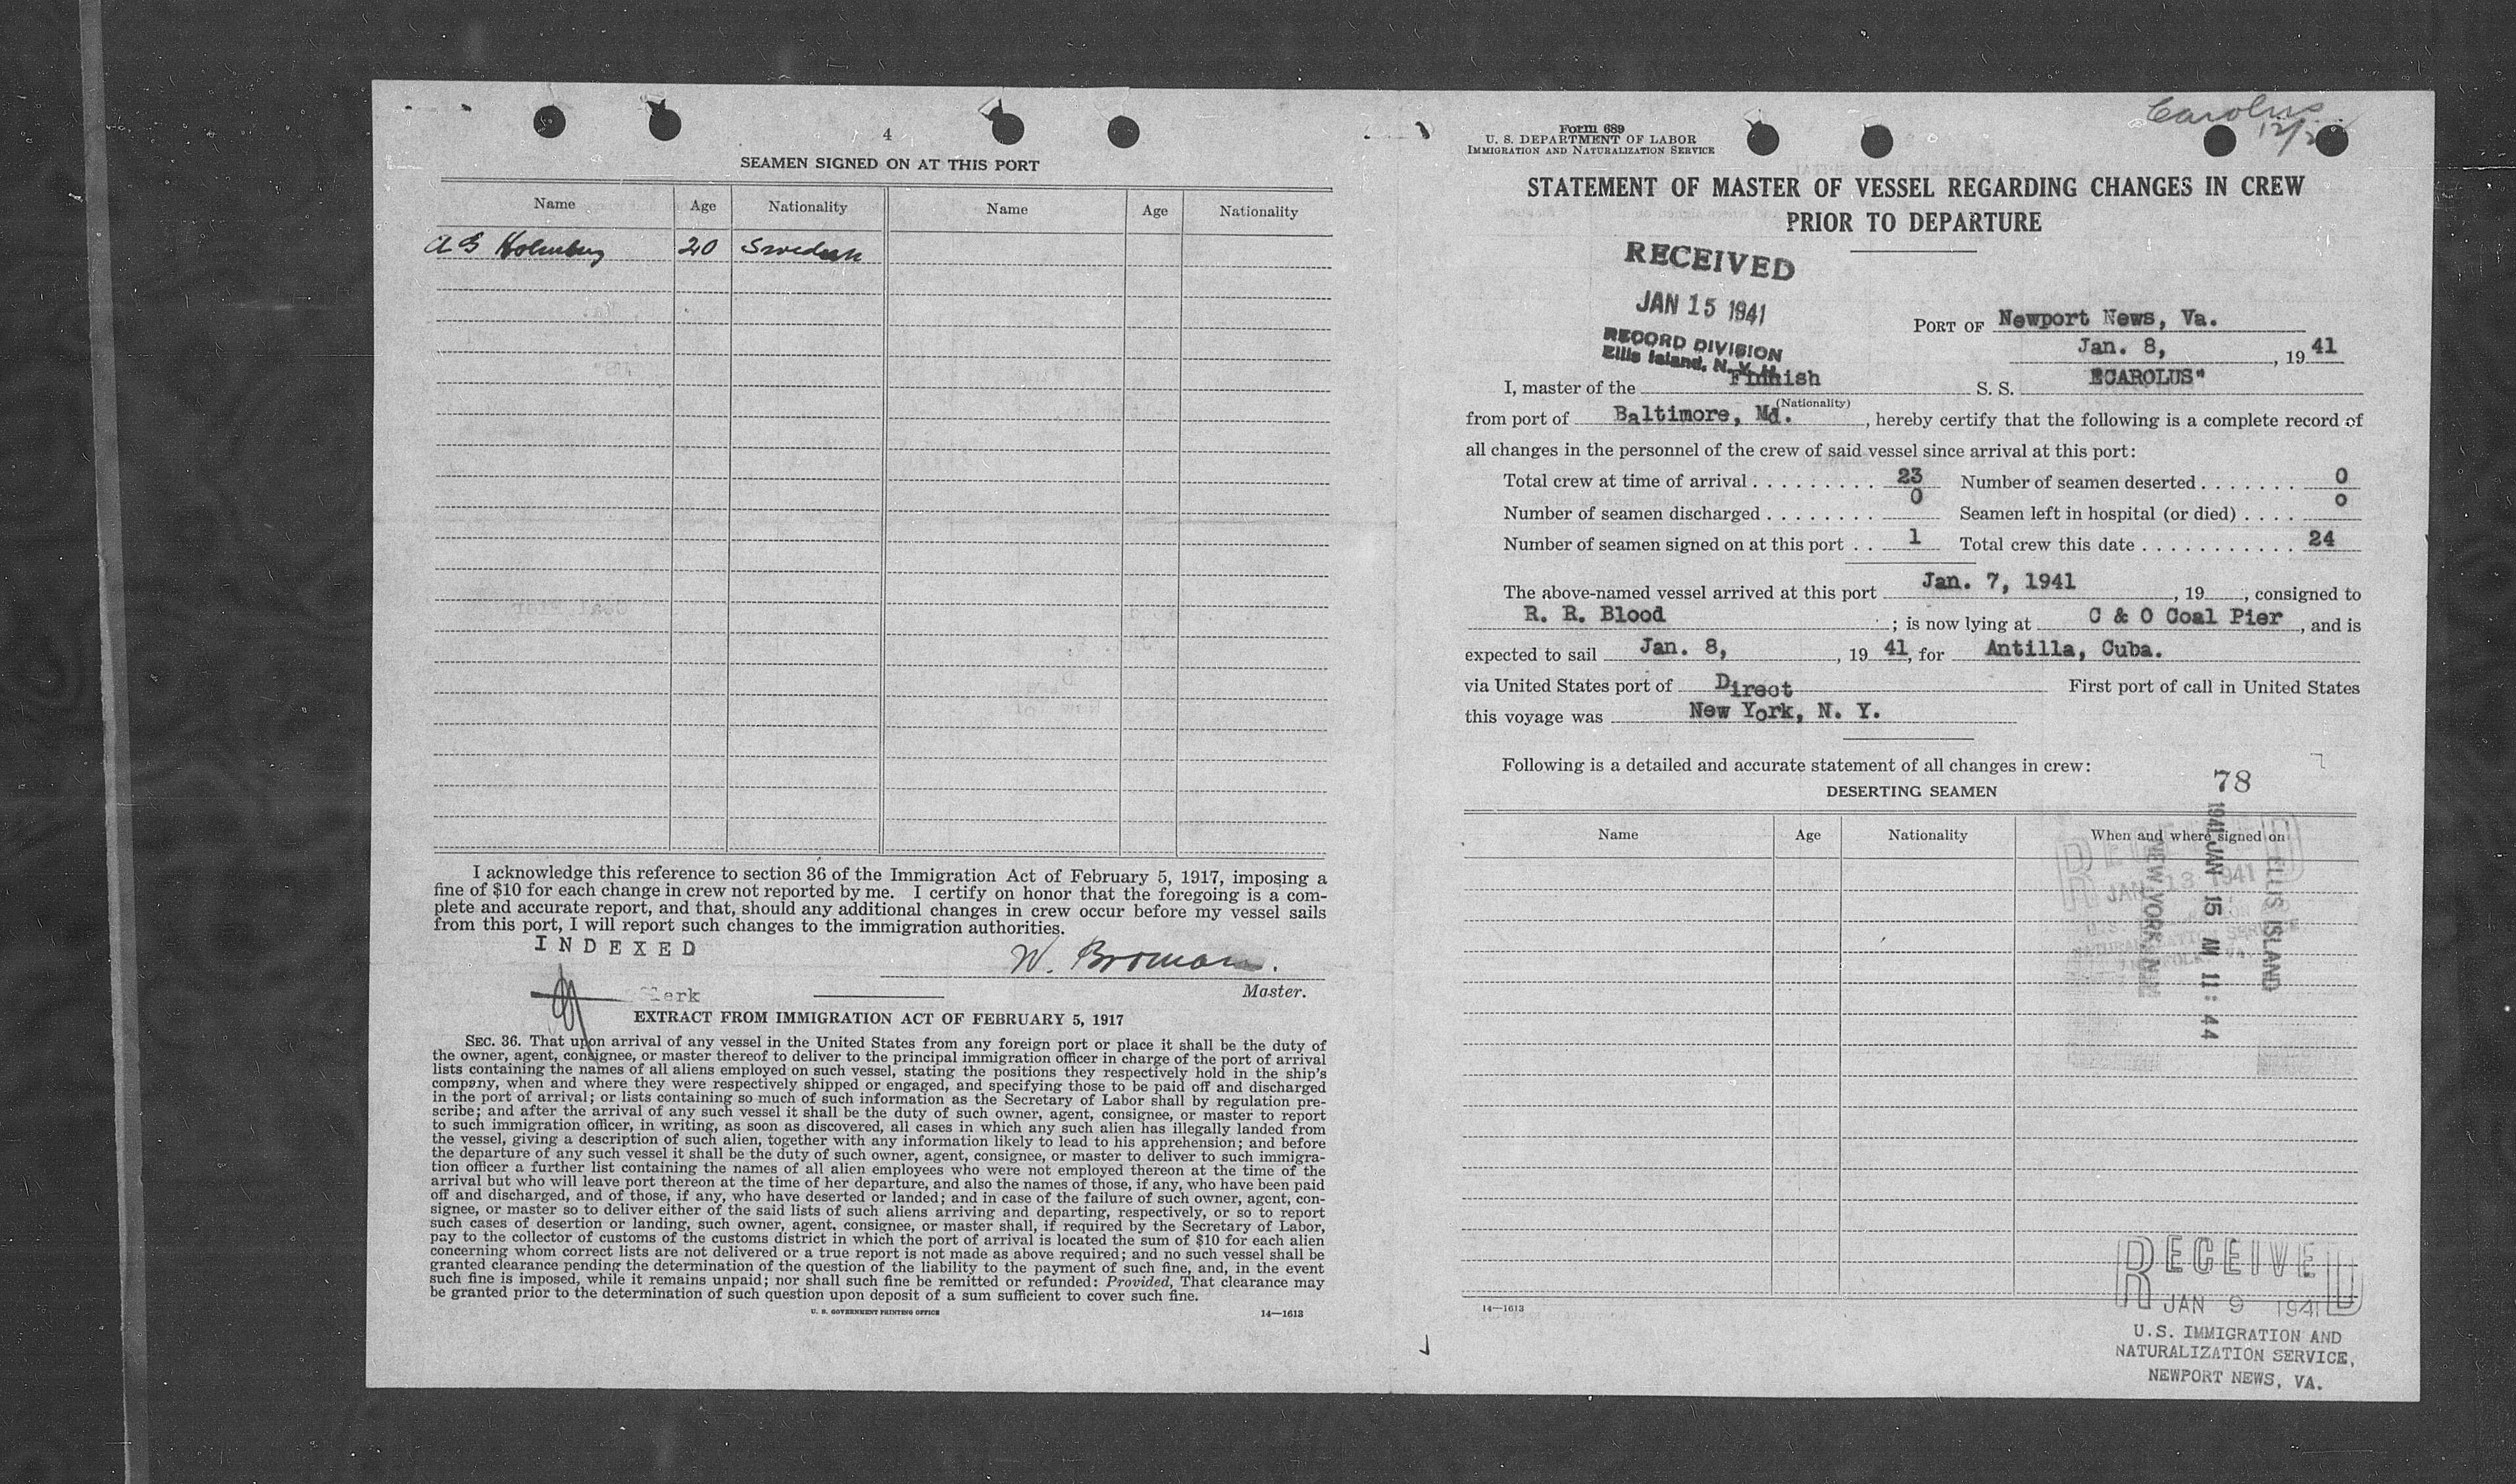 4
SEAMEN SIGNED ON AT THIS PORT
Name Age Nationality Name Age Nationality
A G Holmberg 20 Swedish
I acknowledge this reference to section 36 of the Immigration Act of February 5, 1917, imposing a
fine of $10 for each change in crew not reported by me. I certify on honor that the foregoing is a com-
plete and accurate report, and that, should any additional changes in crew occur before my vessel sails
from this port, I will report such changes to the immigration authorities.
INDEXED
W. Broman.
Clerk
Master.
EXTRACT FROM IMMIGRATION ACT OF FEBRUARY 5, 1917
SEC. 36. That upon arrival of any vessel in the United States from any foreign port or place it shall be the duty of
the owner, agent, consignee, or master thereof to deliver to the principal immigration officer in charge of the port of arrival
lists containing the names of all aliens employed on such vessel, stating the positions they respectively hold in the ship's
company, when and where they were respectively shipped or engaged, and specifying those to be paid off and discharged
in the port of arrival; or lists containing so much of such information as the Secretary of Labor shall by regulation pre-
scribe; and after the arrival of any such vessel it shall be the duty of such owner, agent, consignee, or master to report
to such immigration officer, in writing, as soon as discovered, all cases in which any such alien has illegally landed from
the vessel, giving a description of such alien, together with any information likely to lead to his apprehension; and before
the departure of any such vessel it shall be the duty of such owner, agent, consignee, or master to deliver to such immigra-
tion officer a further list containing the names of all alien employees who were not employed thereon at the time of the
arrival but who will leave port thereon at the time of her departure, and also the names of those, if any, who have been paid
off and discharged, and of those, if any, who have deserted or landed; and in case of the failure of such owner, agent, con-
signee, or master so to deliver either of the said lists of such aliens arriving and departing, respectively, or so to report
such cases of desertion or landing, such owner, agent, consignee, or master shall, if required by the Secretary of Labor,
pay to the collector of customs of the customs district in which the port of arrival is located the sum of $10 for each alien
concerning whom correct lists are not delivered or a true report is not made as above required; and no such vessel shall be
granted clearance pending the determination of the question of the liability to the payment of such fine, and, in the event
such fine is imposed, while it remains unpaid; nor shall such fine be remitted or refunded: Provided, That clearance may
be granted prior to the determination of such question upon deposit of a sum sufficient to cover such fine.
U. S. GOVERNMENT PRINTING OFFICE 14—1613
Carolus
12/
Form 689
U. S. DEPARTMENT OF LABOR
IMMIGRATION AND NATURALIZATION SERVICE
STATEMENT OF MASTER OF VESSEL REGARDING CHANGES IN CREW
PRIOR TO DEPARTURE
RECEIVED
JAN 15 1941
RECORD DIVISION
Ellis Island, N. Y. H.
PORT OF Newport News, Va.
Jan. 8, , 19 41
I, master of the Finnish S. S. "CAROLUS"
(Nationality)
from port of Baltimore, Md. , hereby certify that the following is a complete record of
all changes in the personnel of the crew of said vessel since arrival at this port:
Total crew at time of arrival . . . . . . . . . 23 Number of seamen deserted . . . . . . . 0
Number of seamen discharged . . . . . . . . 0 Seamen left in hospital (or died) . . . . 0
Number of seamen signed on at this port . . 1 Total crew this date . . . . . . . . . . . 24
The above-named vessel arrived at this port Jan. 7, 1941 , 19 , consigned to
R. R. Blood ; is now lying at C & O Coal Pier , and is
expected to sail Jan. 8, , 19 41, for Antilla, Cuba.
via United States port of Direct First port of call in United States
this voyage was New York, N. Y.
Following is a detailed and accurate statement of all changes in crew:
78
DESERTING SEAMEN
Name Age Nationality When and where signed on
RECEIVED
JAN 13 1941
ELLIS ISLAND
1941 JAN 15 AM 11:44
NEW YORK
14—1613
RECEIVED
JAN 9 1941
U.S. IMMIGRATION AND
NATURALIZATION SERVICE,
NEWPORT NEWS, VA.